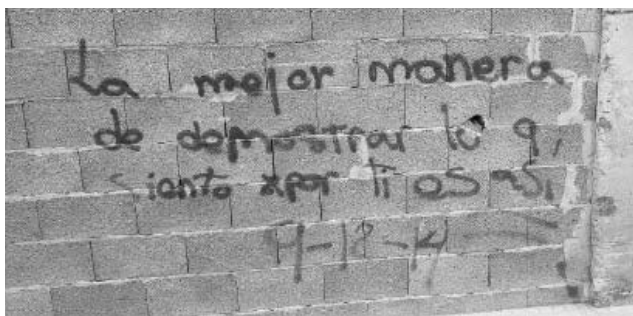 La mejor manera
de demostrar lo q,
siento xpor ti es así,